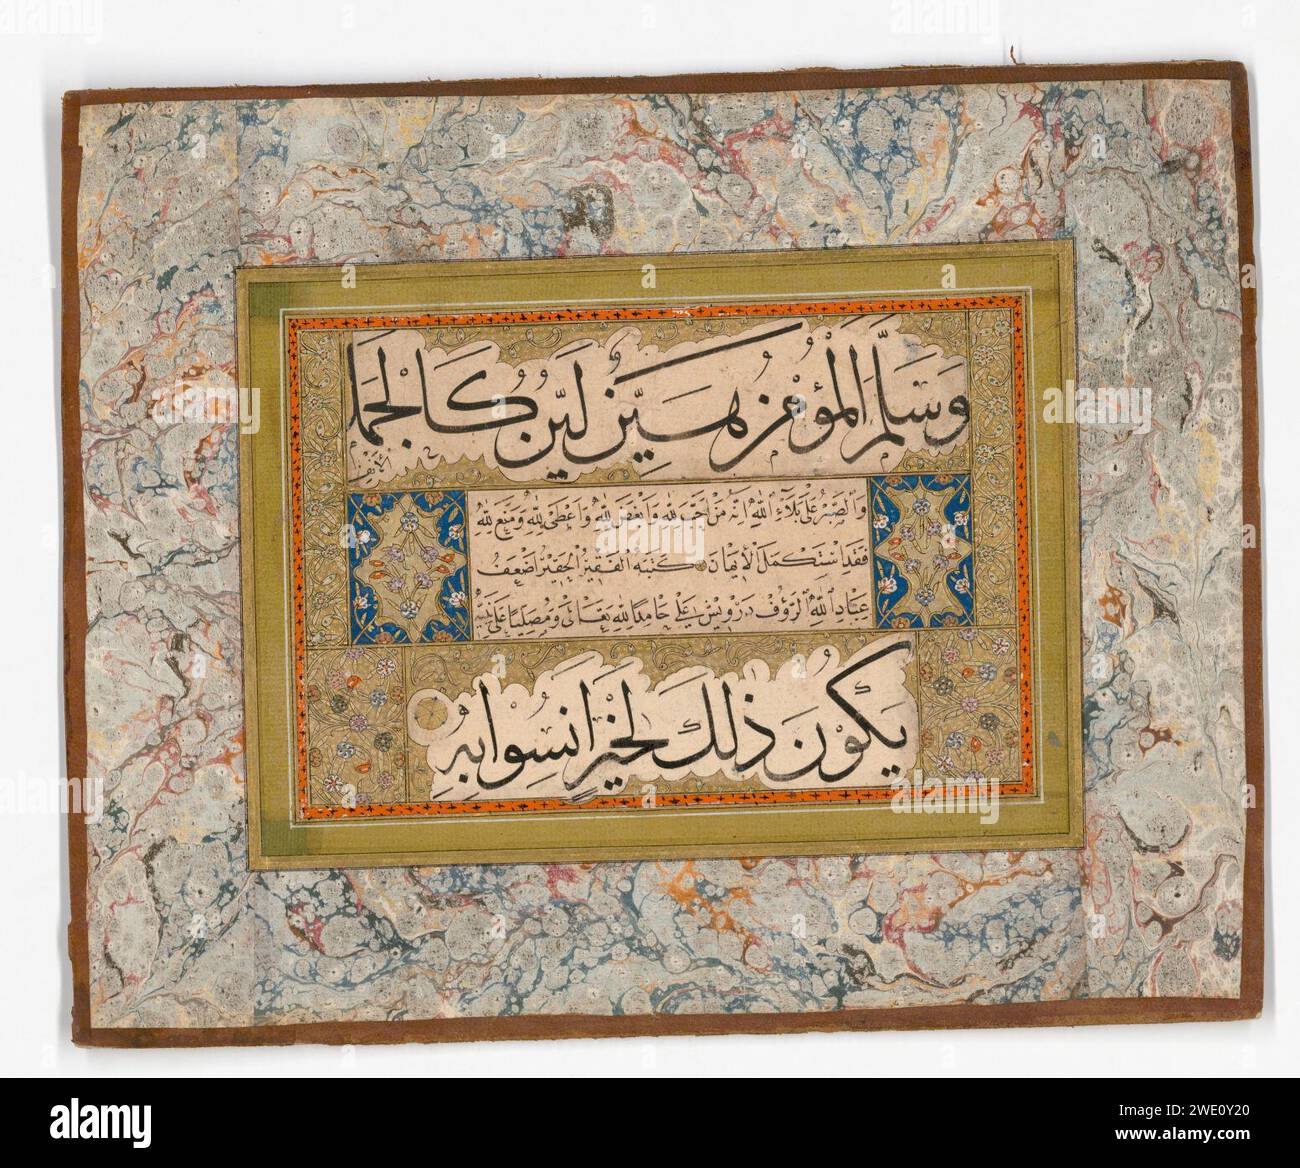 وَسَلَّمَ المُؤْمِنُ هَيِّنٌ لَيِّنٌ كَالجَمَلِ
الأَنِفِ
وَالصَّبْرُ عَلَى بَلَاءِ اللهِ اِنَّهُ مَنْ اَحَبَّ لِلّٰهِ وَاَبْغَضَ لِلّٰهِ وَاَعْطَى لِلّٰهِ وَمَنَعَ لِلّٰهِ
فَقَدِ اسْتَكْمَلَ الْاِيمَانَ كَتَبَهُ الفَقِيرُ الحَقِيرُ اَضْعَفُ
عِبَادِ اللهِ الرَّؤُفِ دَرْوِيش عَلِي حَامِدًا لِلّٰهِ تَعَالَى وَمُصَلِّيًا عَلَى نَبِيِّهِ
يَكُونُ ذٰلِكَ لِخَيْرٍ اَنْسُوا بِهِ
alamy
Image ID: 2WE0Y20
www.alamy.com